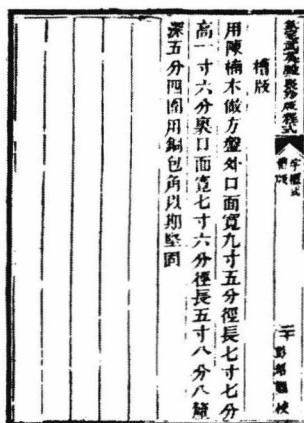 欽定武英殿聚珍版程式
字櫃式
槽版
二十
彭紹觀校
槽版
用陳楠木做方盤外口面寬九寸五分徑長七寸七分
高一寸六分裏口面寬七寸六分徑長五寸八分八釐
深五分四圍用銅包角以期堅固